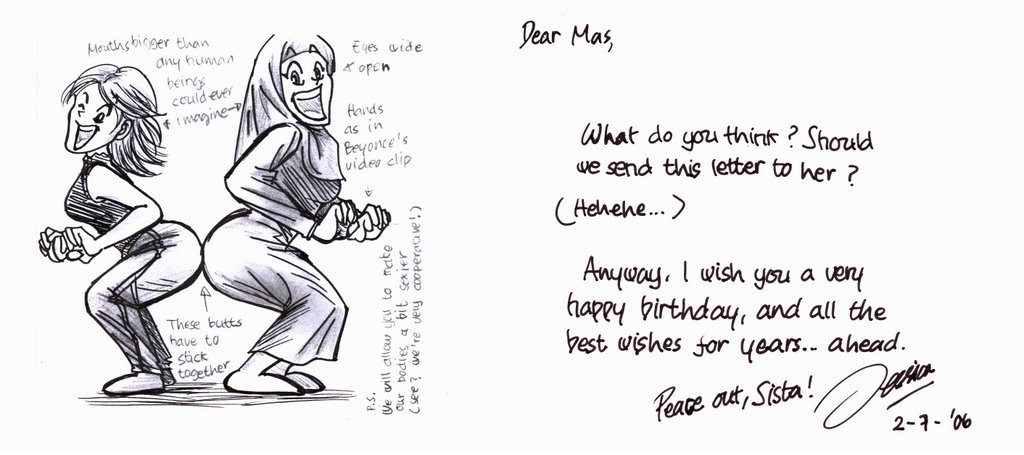 Mouths bigger than
any human
beings
could ever
imagine
Eyes wide
open
Hands
as in
Beyonce's
video clip
These butts
have to
stick
together
P.S.
We will allow you to make
our bodies a bit sexier
(see? We're very cooperative!)
Dear Mas,
What do you think? Should
we send this letter to her?
(Hehehe...)
Anyway, I wish you a very
happy birthday, and all the
best wishes for years... ahead.
Peace out, Sista!
2-7-'06